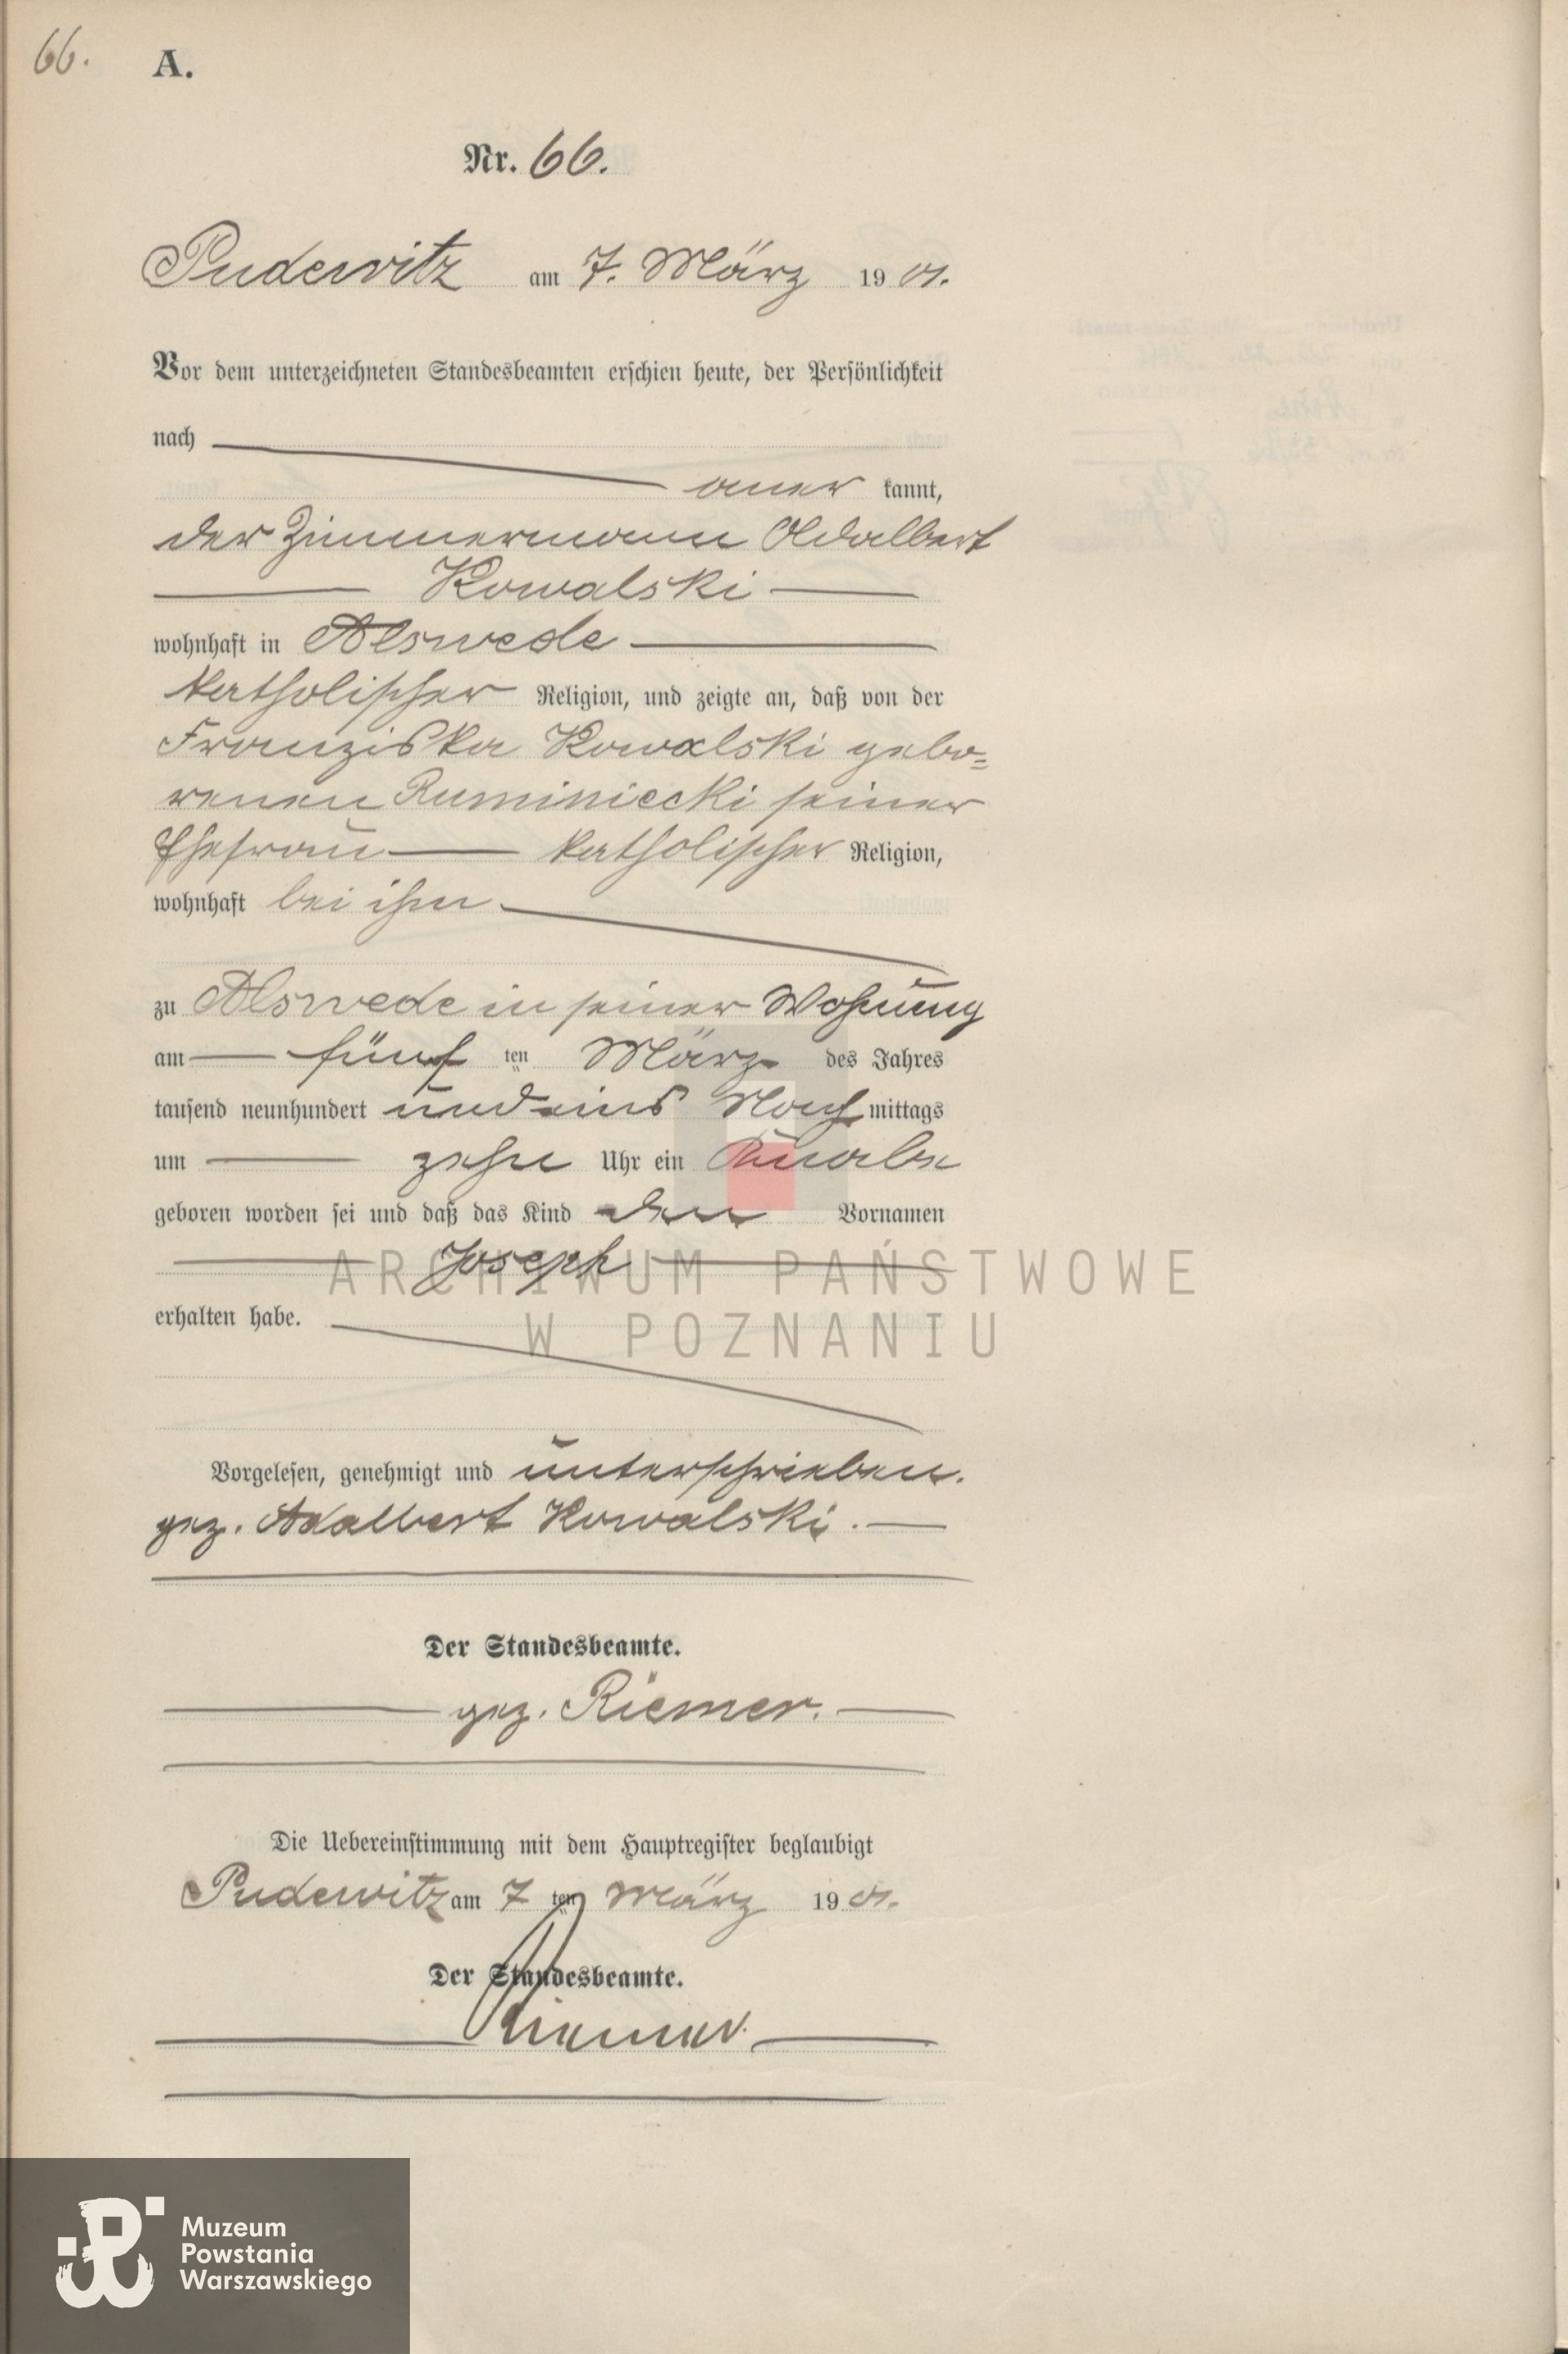 66.
A.
Nr. 66.
Pudewitz am 7. März 1901.
Vor dem unterzeichneten Standesbeamten erschien heute, der Persönlichkeit
nach
aner kannt,
der Zimmermann Adalbert
Kowalski
wohnhaft in Alswede
katholischer Religion, und zeigte an, daß von der
Franziska Kowalski gebo=
renen Ruminiecki seiner
Ehefrau katholischer Religion,
wohnhaft bei ihm
zu Alswede in seiner Wohnung
am fünf ten März des Jahres
tausend neunhundert und eins Nachmittags
um zehn Uhr ein Knabe
geboren worden sei und daß das Kind den Vornamen
Joseph
erhalten habe.
ARCHIWUM PAŃSTWOWE
W POZNANIU
Vorgelesen, genehmigt und unterschrieben.
gez. Adalbert Kowalski.
Der Standesbeamte.
gez. Riemer.
Die Uebereinstimmung mit dem Hauptregister beglaubigt
Pudewitz am 7 ten März 1901.
Der Standesbeamte.
Riemer.
Muzeum
Powstania
Warszawskiego